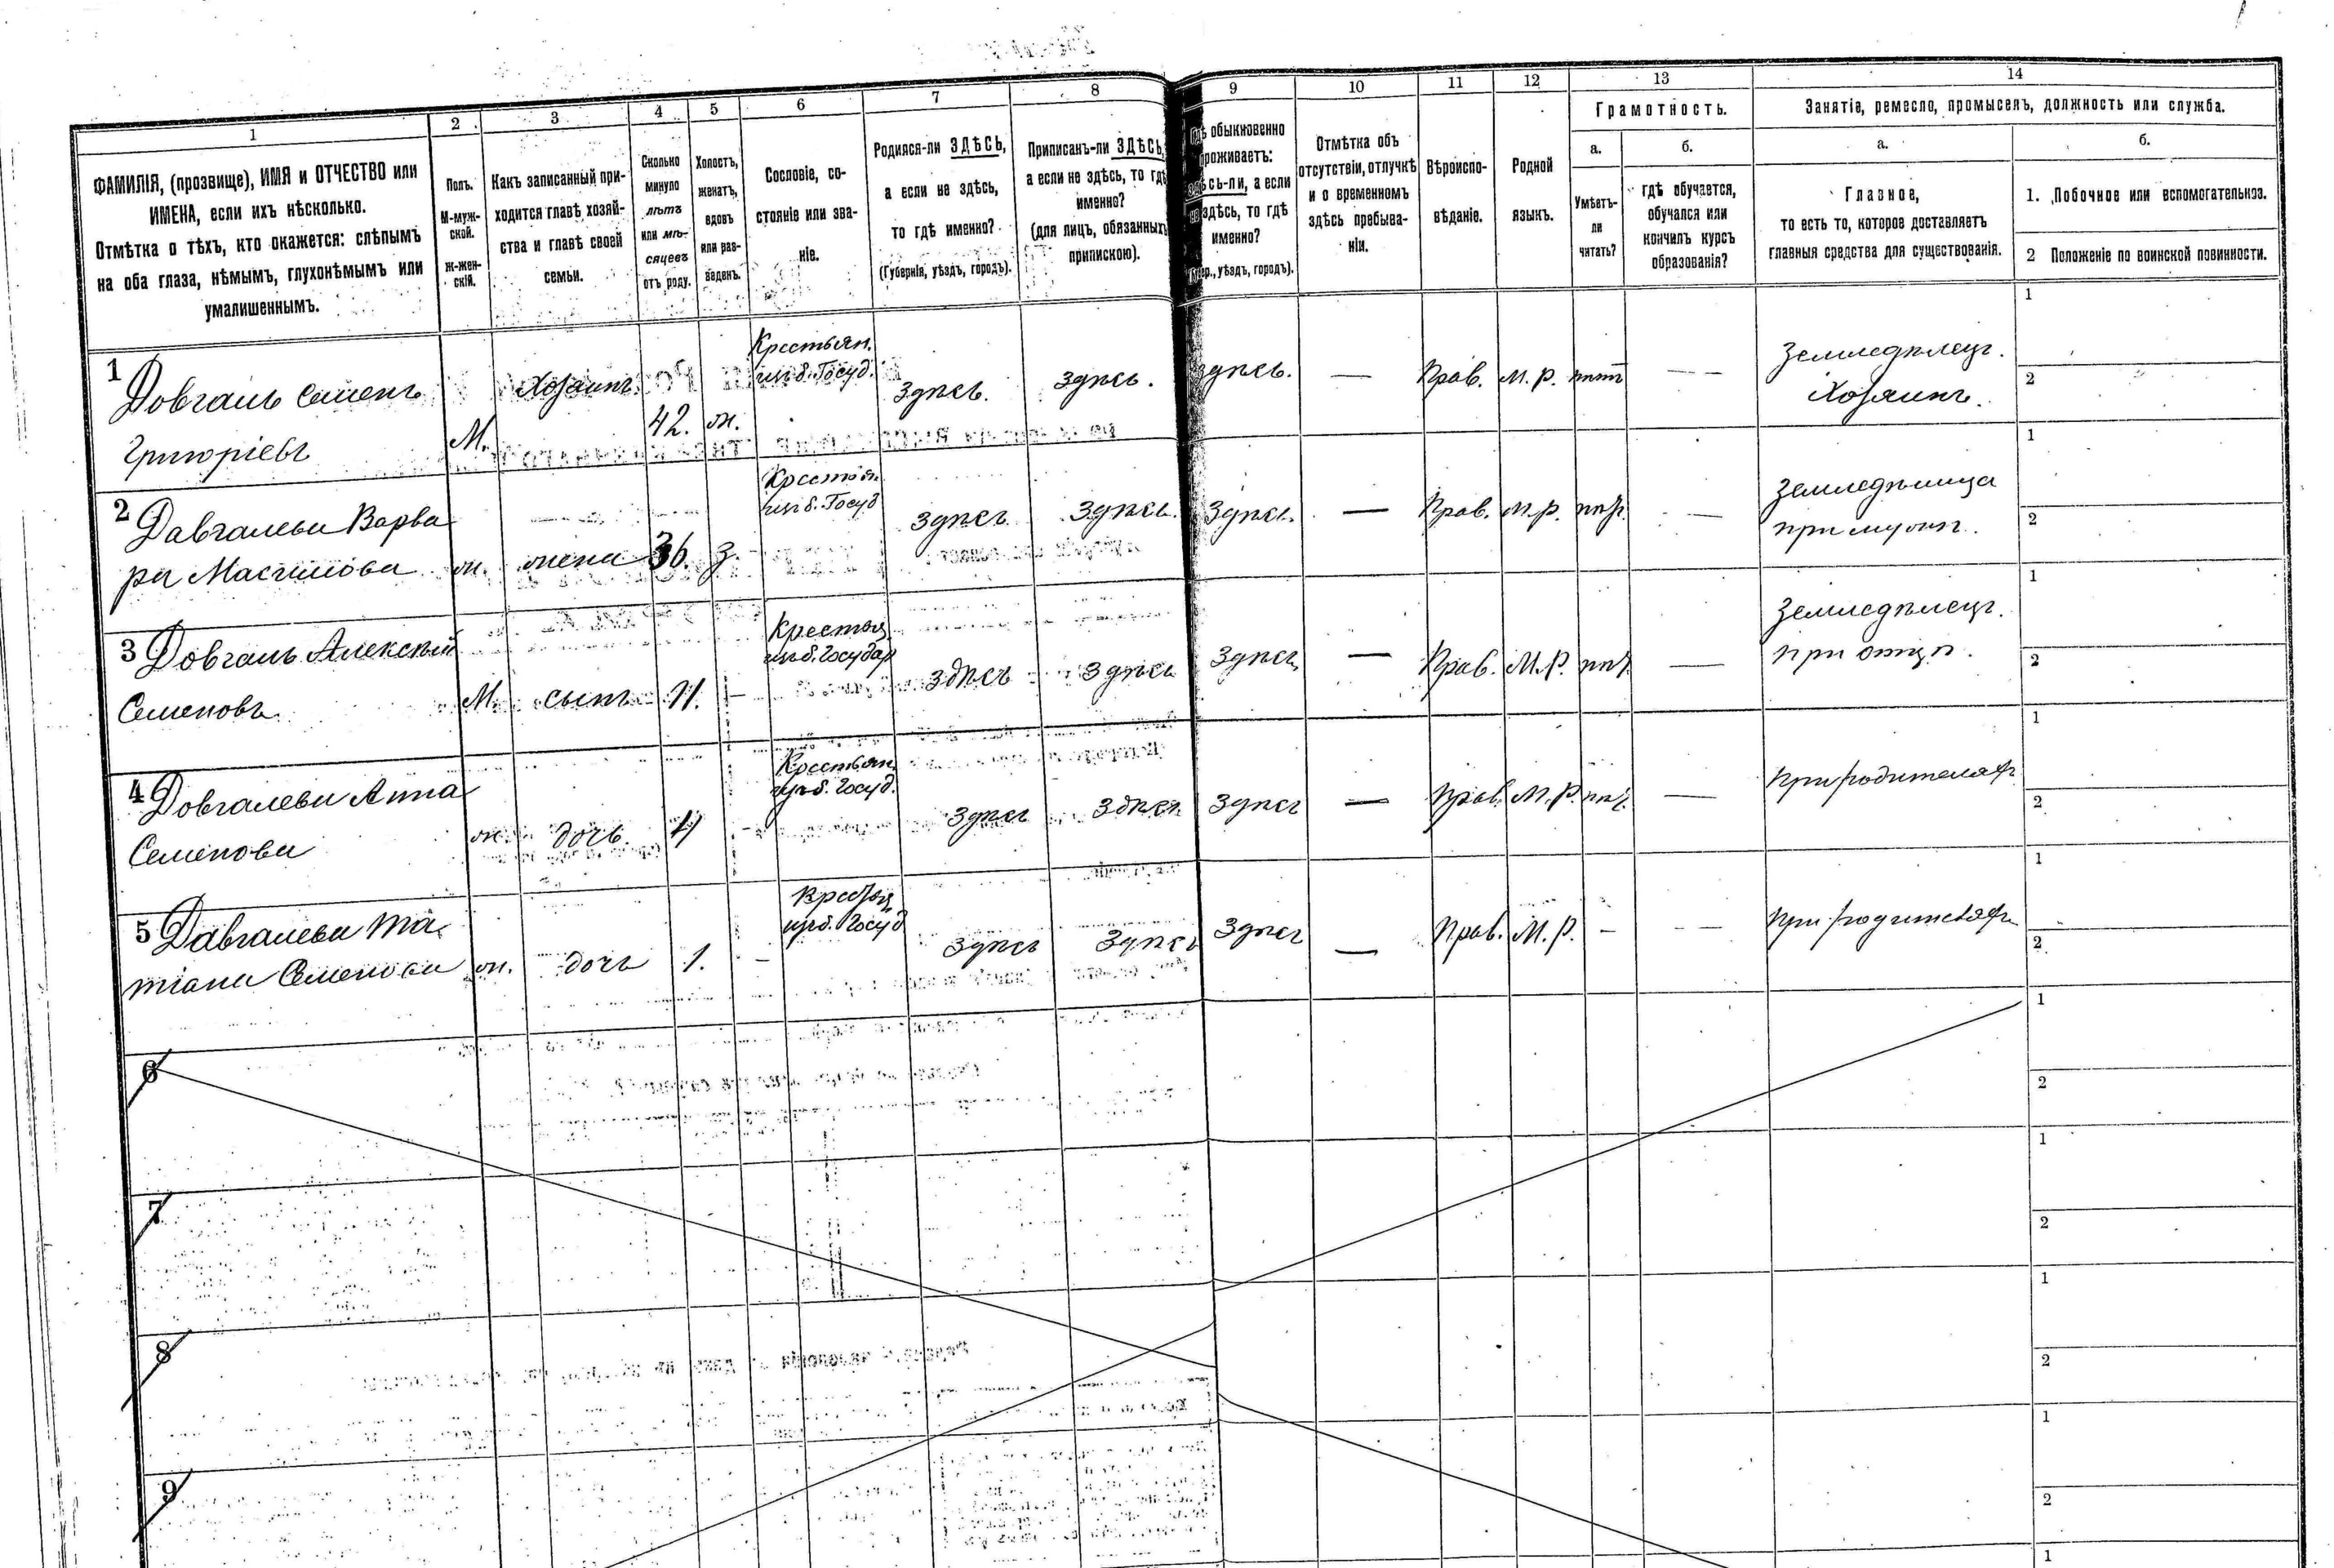 1 2 3 4 5 6 7 8 9 10 11 12 13 14
ФАМИЛІЯ, (прозвище), ИМЯ и ОТЧЕСТВО или
ИМЕНА, если ихъ нѣсколько.
Отмѣтка о тѣхъ, кто окажется: слѣпымъ
на оба глаза, нѣмымъ, глухонѣмымъ или
умалишеннымъ.
Полъ.
М-муж-
ской.
Ж-жен-
скій.
Какъ записанный при-
ходится главѣ хозяй-
ства и главѣ своей
семьи.
Сколько
минуло
лѣтъ
или мѣ-
сяцевъ
отъ роду.
Холостъ,
женатъ,
вдовъ
или раз-
веденъ.
Сословіе, со-
стояніе или зва-
ніе.
Родился-ли ЗДѢСЬ,
а если не здѣсь,
то гдѣ именно?
(Губернія, уѣздъ, городъ).
Приписанъ-ли ЗДѢСЬ,
а если не здѣсь, то гдѣ
именно?
(для лицъ, обязанныхъ
припискою).
обыкновенно
проживаетъ:
здѣсь-ли, а если
не здѣсь, то гдѣ
именно?
уѣздъ, городъ).
Отмѣтка объ
отсутствіи, отлучкѣ
и о временномъ
здѣсь пребыва-
ніи.
Вѣроиспо-
вѣданіе.
Родной
языкъ.
Грамотность.
а.
Умѣетъ-
ли
читать?
б.
гдѣ обучается,
обучался или
кончилъ курсъ
образованія?
Занятіе, ремесло, промыселъ, должность или служба.
а.
Главное,
то есть то, которое доставляетъ
главныя средства для существованія.
б.
1. Побочное или вспомогательное.
2 Положеніе по воинской повинности.
1 Довгаль Семенъ
Григоріевъ
М.
Хозяинъ
42.
ж.
Крестьян.
изъ б. Госуд.
здѣсь.
здѣсь.
здѣсь.
—
Прав.
М. Р.
нѣтъ
— —
Земледѣлецъ.
Хозяинъ.
1
2
2 Давгалева Варва
ра Масимова
ж.
жена
36.
з.
Крестья.
изъ б. Госуд
здѣсь
здѣсь.
здѣсь.
—
Прав.
М. Р.
нѣт.
—
Земледѣлица
при мужѣ.
1
2
3 Довгаль Алексѣй
Семеновъ.
М.
сынъ
11.
—
Крестья
изъ б. Государ
здѣсь
здѣсь
здѣсь
—
Прав.
М. Р.
нѣт.
—
Земледѣлецъ.
при отцѣ.
1
2
4 Довгалева Анна
Семенова
ж.
дочь
Крестьян
изъ б. Госуд.
здѣсь
здѣсь
здѣсь
—
Прав.
М. Р.
нѣт.
—
При родителях
1
2
5 Давгалева Та
тіана Семенова
ж.
дочь
1.
—
Крестья
изъ б. Госуд
здѣсь
здѣсь
здѣсь
—
Прав.
М. Р.
—
— —
При родителях
1
2
6
1
2
7
1
2
8
1
2
9
1
2
1